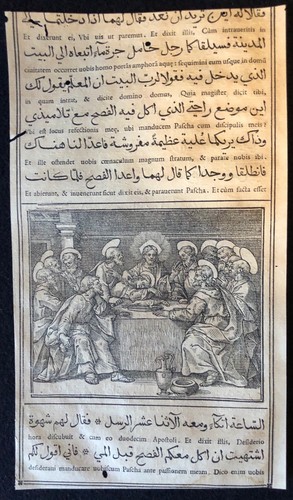 فقالا له اين تريد ان نعد فقال لهما اذا دخلتما
Et dixerunt ei, Vbi uis ut paremus. Et dixit illis, Cùm intraueritis in
المدينة فسيلقاكما رجل حامل جرة ماء اتبعاه الى البيت
ciuitatem occurret uobis homo portās amphorā aquę: sequimini eum usque in domū
الذي يدخل فيه فقولا لرب البيت ان المعلم يقول لك
in quam intrat, & dicite domino domus, Quia magister dicit tibi,
اين موضع راحتي الذي اكل فيه الفصح مع تلاميذي
Vbi est locus refectionis meę, ubi manducem Pascha cum discipulis meis?
وذاك يريكما علية عظيمة مفروشة فاعدا لنا هناك
Et ille ostendet uobis cœnaculum magnum stratum, & parate nobis ibi.
فانطلقا ووجدا كما قال لهما واعدا الفصح فلما كانت
Et abierunt, & inuenerunt sicut dixit eis, & parauerunt Pascha. Et cùm facta esset
الساعة اتكأ ومعه الاثنا عشر الرسل * فقال لهم شهوة
hora discubuit & cum eo duodecim Apostoli. Et dixit illis, Desiderio
اشتهيت ان اكل معكم الفصح قبل المي * فاني اقول لكم
desideraui manducare uobiscum Pascha ante passionem meam. Dico enim uobis